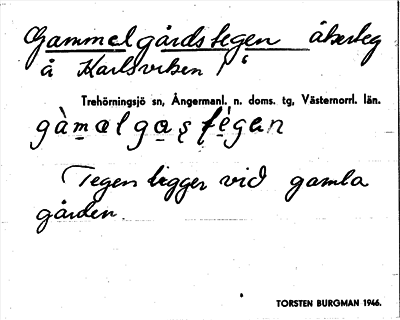 Gammelgårdstegen åkerteg
å Karlsviken 1/6
Trehörningsjö sn, Ångermanl. n. doms. tg, Västernorrl. län.
gàmalgaʂtégan
Tegen ligger vid gamla
gården.
TORSTEN BURGMAN 1946.